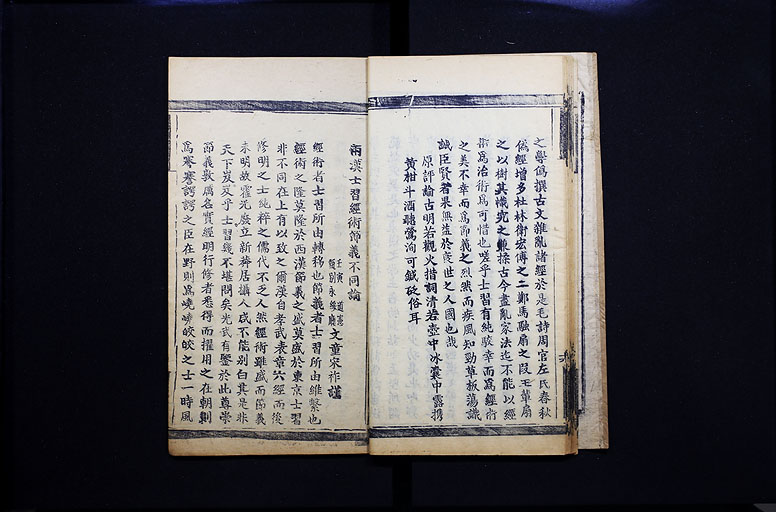 之學僞撰古文雜亂諸經於是毛詩周官左氏春秋
僞經增多杜林衛宏傳之二鄭馬融扇之叚王輩扇
之以樹其幟究之數揉古今盡亂家法迄不能以經
術爲治術爲可惜也嗟乎士習有純駁幸而爲經術
之美不幸而爲節義之烈然而疾風知勁草板蕩識
誠臣賢者果無益於衰世之人國也哉
原評論古明若觀火措詞清若壺中冰囊中露携
黃柑斗酒聽鶯洵可鍼砭俗耳
兩漢士習經術節義不同論
壬寅 道憲
覆別永綏廳 文童宋祚謹
經術者士習所由轉移也節義者士習所由維繫也
經術之隆莫隆於西漢節義之盛莫盛於東京士習
非不同在上有以致之爾漢自孝武表章六經而後
修明之士純粹之儒代不乏人然經術雖盛而節義
未明故霍光廢立新莽居攝人咸不能別白其是非
天下岌岌乎士習幾不堪問矣光武有鑒於此尊崇
節義敦厲名實經明行修者悉得而擢用之在朝則
爲謇謇諤諤之臣在野則爲嶢嶢皎皎之士一時風